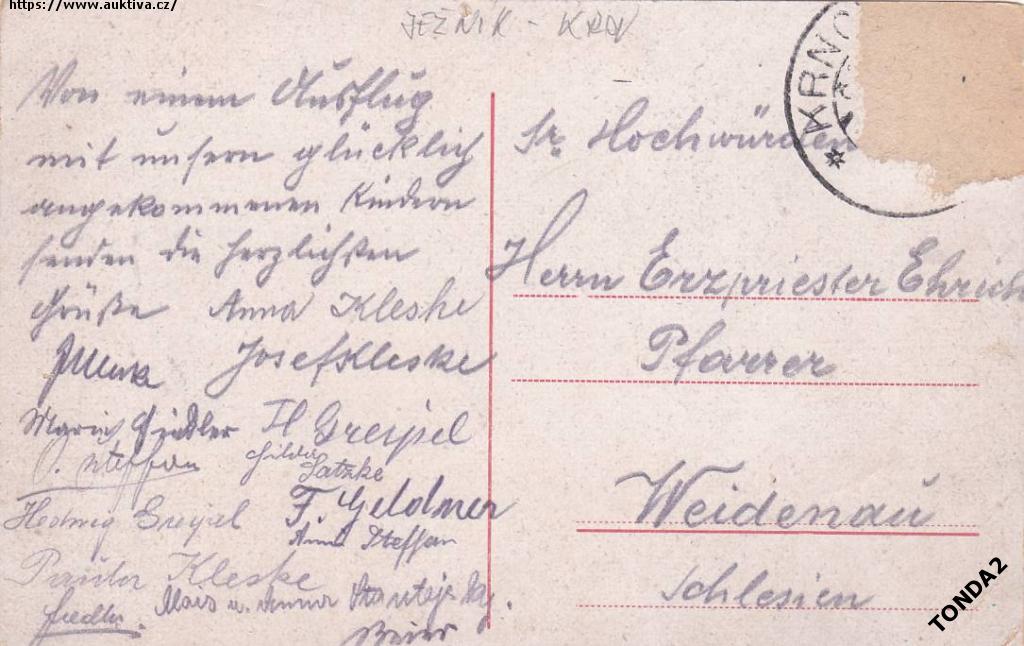 https://www.auktiva.cz/
JEŽNIK - KRN
KRNO
Von einem Ausflug
mit unsern glücklich
angekommenen Kindern
senden die herzlichsten
Grüße Anna Kleske
Josef Kleske
Marie Fiedler H Greipel
Steffan Hilda
Latzke
Hedwig Greipel F. Geldner
Anna Steffan
Kleske
Fiedler. u. Anna
Beier
Sr. Hochwürden
Herrn Erzpriester Ehrich
Pfarrer
Weidenau
Schlesien
TONDA2